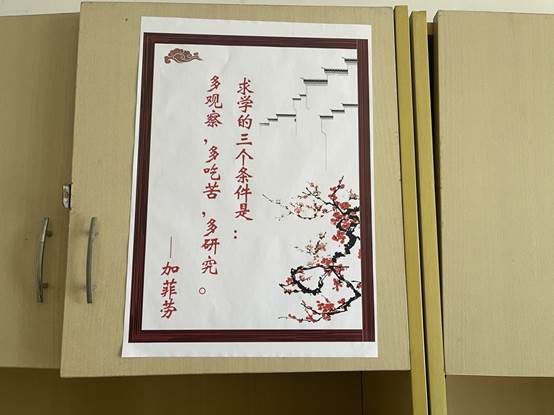 求学的三个条件是：
多观察，多吃苦，多研究。
——加菲劳